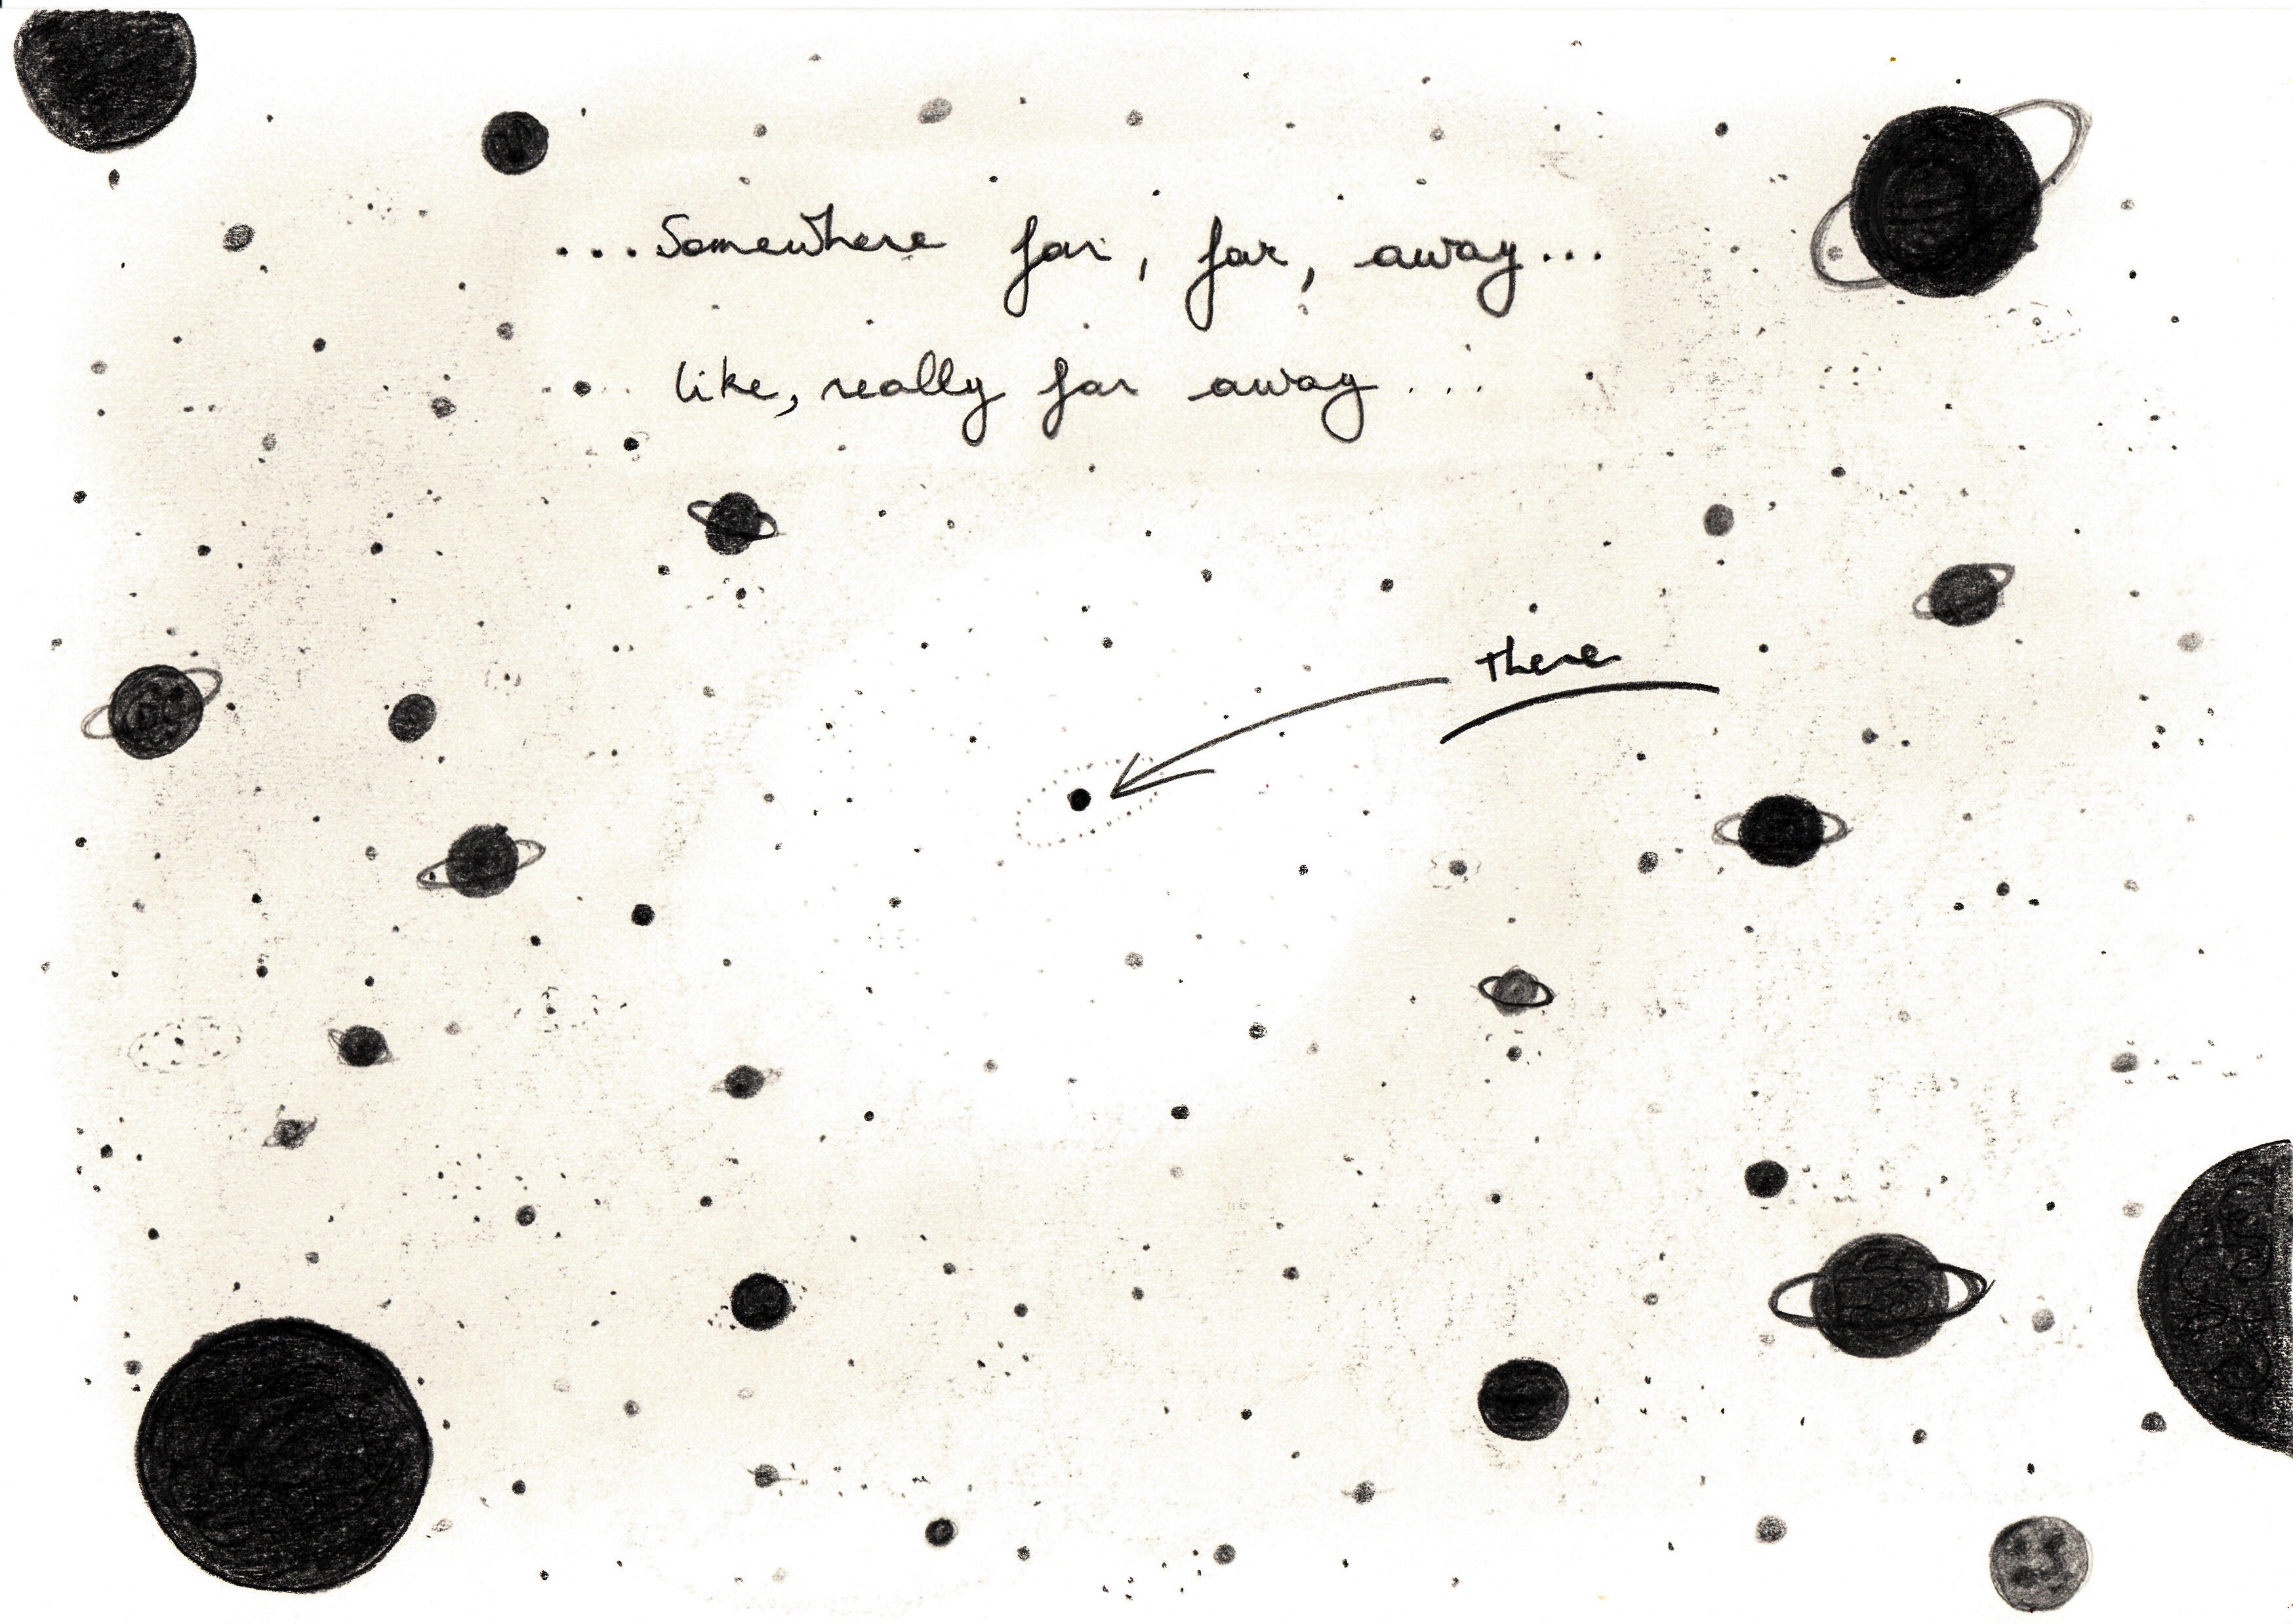 ...Somewhere far, far, away...
like, really far away ...
there